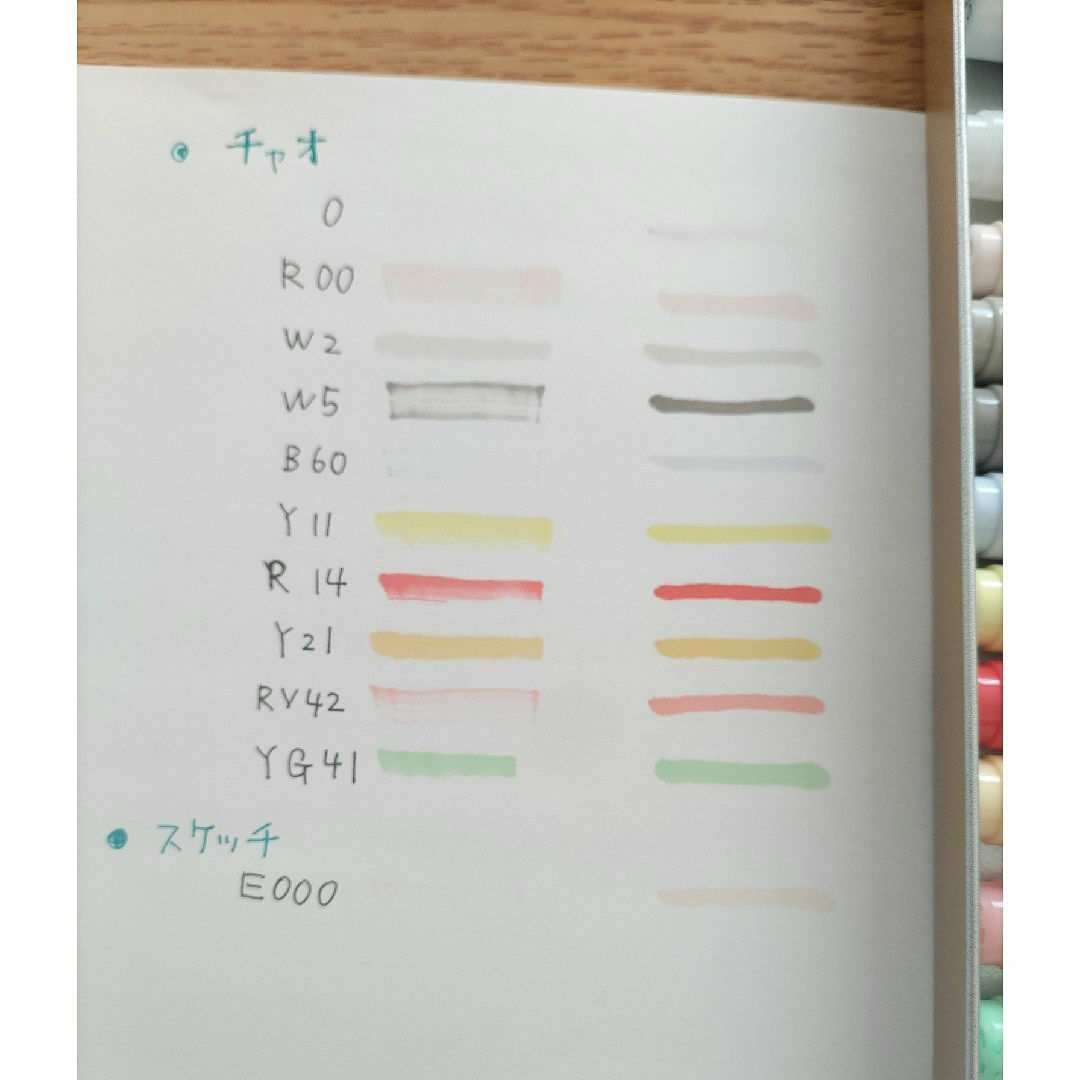 • チャオ
0
R00
W2
W5
B60
Y11
R14
Y21
RV42
YG41
• スケッチ
E000